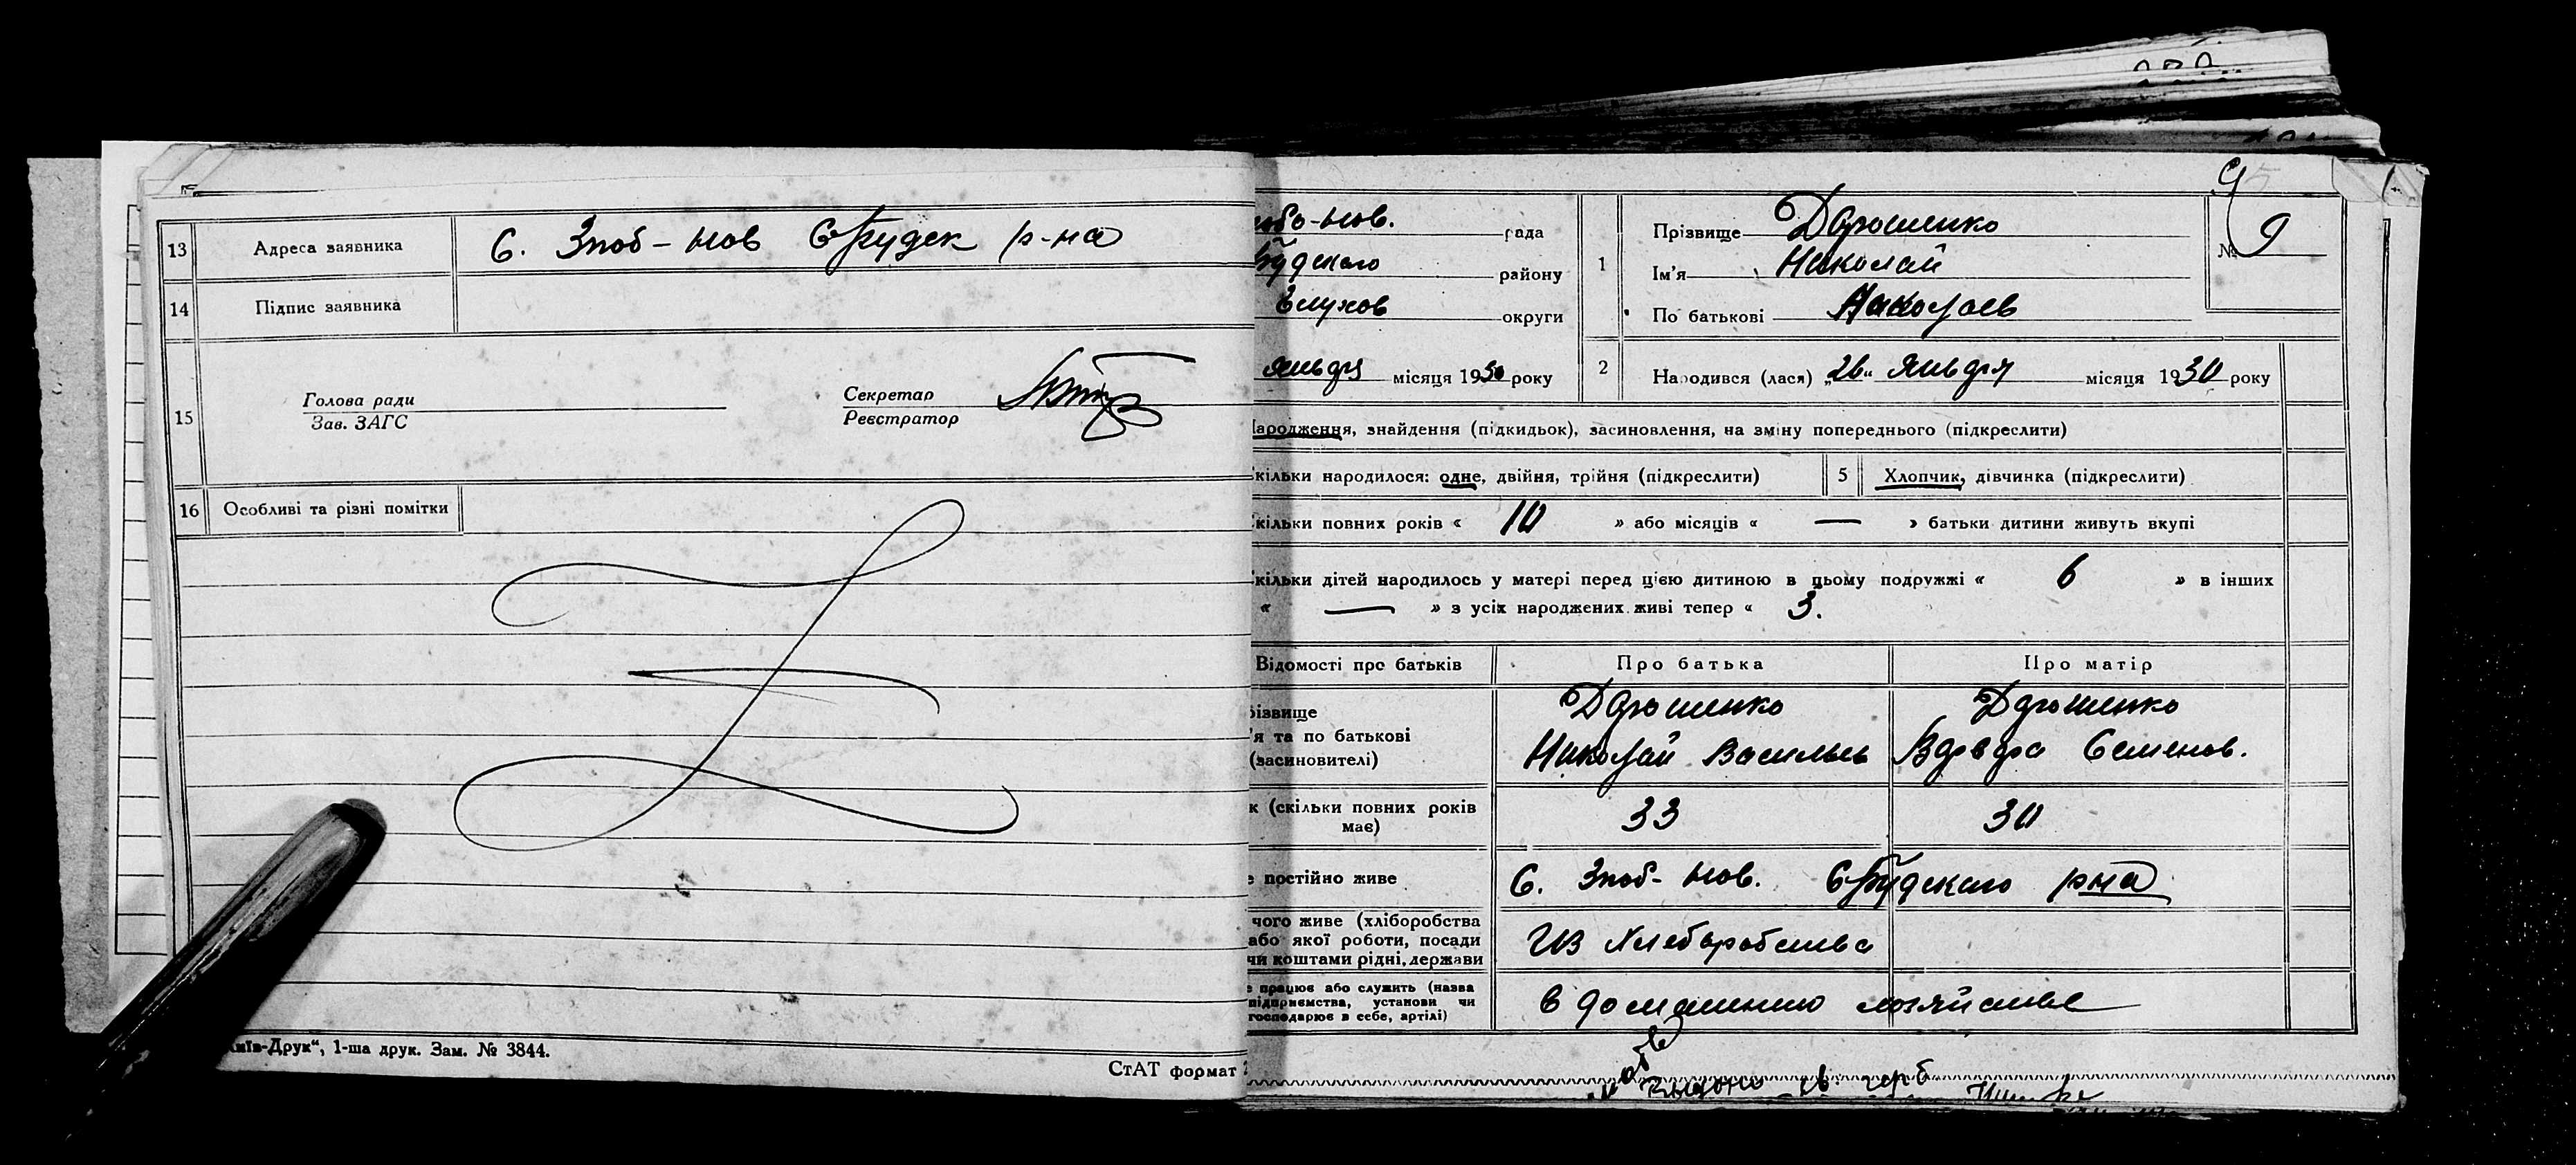 13 Адреса заявника С. Зноб-Нов СБудск р-на
14 Підпис заявника
15 Голова ради
Зав. ЗАГС
Секретар
Реєстратор
16 Особливі та різні помітки
Київ-Друк“, 1-ша друк. Зам. № 3844.
СтАТ формат
9
№ 9
обо-Нов. рада
Будского району
Глухов округи
января місяця 1930 року
1 Прізвище Дорошенко
Ім'я Николай
По батькові Николаев
2 Народився (лася) „26“ Января місяця 1930 року
Народження, знайдення (підкидьок), засиновлення, на зміну попереднього (підкреслити)
кільки народилося: одне, двійня, трійня (підкреслити) 5 Хлопчик, дівчинка (підкреслити)
кільки повних років « 10 » або місяців « — » батьки дитини живуть вкупі
кільки дітей народилось у матері перед цією дитиною в цьому подружжі « 6 » в інших
« — » з усіх народжених живі тепер « 3.
Відомості про батьків Про батька Про матір
різвище Дорошенко Дорошенко
'я та по батькові Николай Васильев Варвара Семенов.
(засиновителі)
к (скільки повних років має) 33 30
е постійно живе С. Зноб-Нов. СБудского р-на
чого живе (хліборобства
або якої роботи, посади
чи коштами рідні, держави
Из Хлеборобства
е працює або служить (назва
підприємства, установи чи
господарює в себе, артілі)
в домашнию хозяйстве